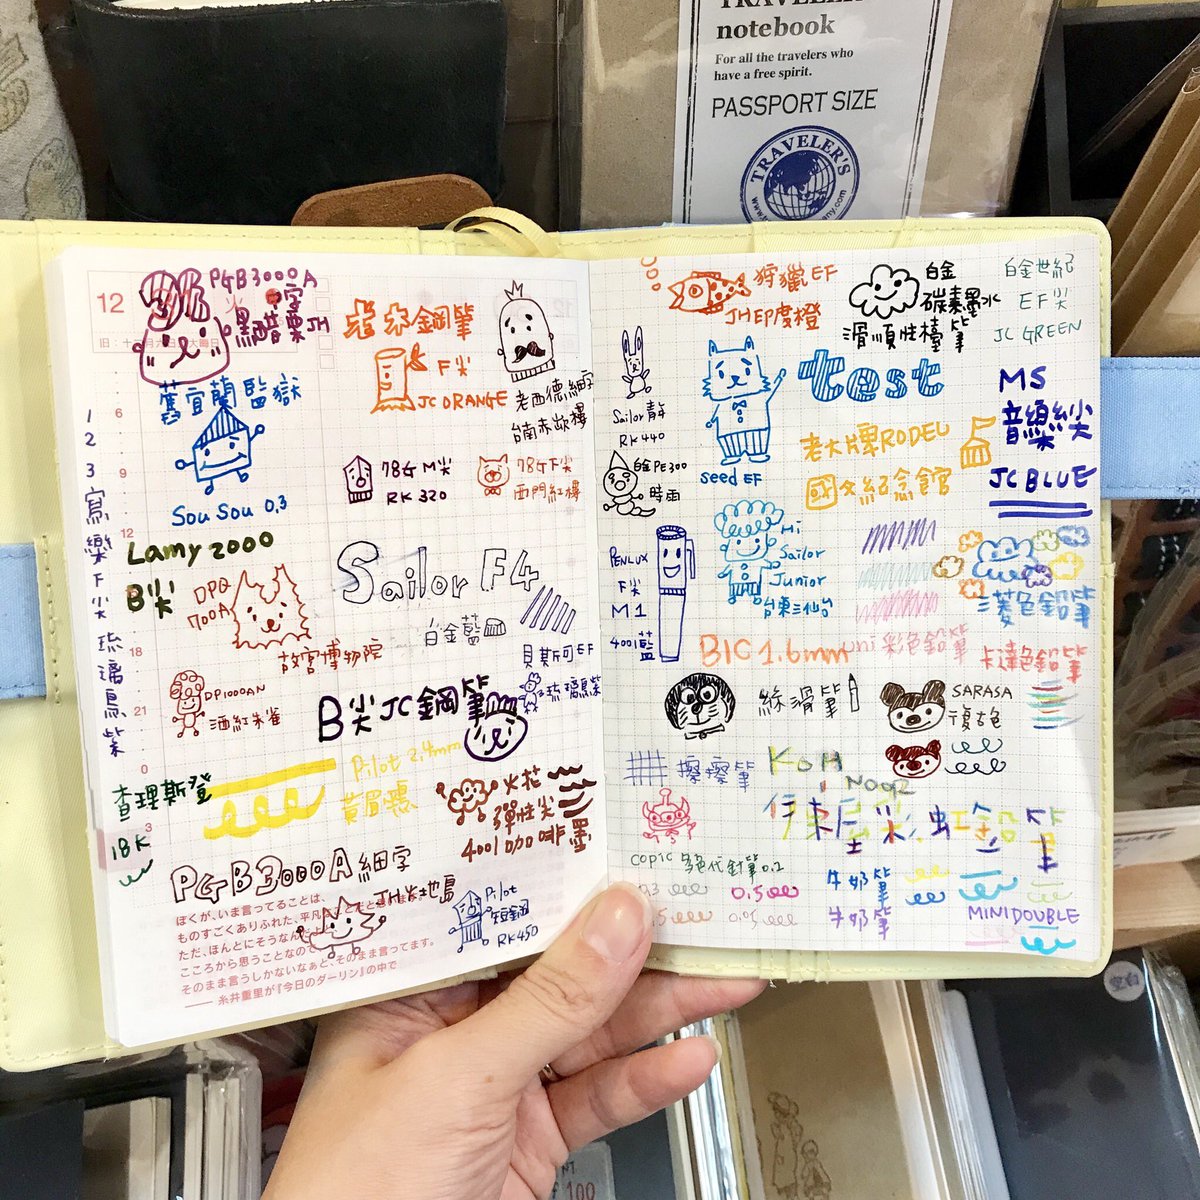 TRAVELER'S
notebook
For all the travelers who
have a free spirit.
PASSPORT SIZE
TRAVELER'S
12
火
PGB3000A
中字
黑醋栗JH
舊宜蘭監獄
Sou Sou 0.3
1
2
3
寫
樂
F
尖
琉
璃
鳥
紫
6
9
12
18
21
0
3
鋼筆
F尖
JC ORANGE
老西德細字
台南赤崁樓
78G M尖
RK 320
78G F尖
西門紅樓
Lamy 2000
B尖
DPQ
700A
故宮博物院
Sailor F4
白金藍
貝斯可EF
琉璃鳥紫
DP1000AN
酒紅朱雀
B尖JC鋼筆
查理斯登
18K
Pilot 2.4mm
黃眉
火花
彈性尖
4001咖啡墨
PGB3000A細字
Pilot
短鋼
RK450
ぼくが、いま言ってることは、
ものすごくありふれた、平凡
ただ、ほんとにそうなんだよ
こころから思うことなので
そのまま言うしかないなぁと、そのまま言ってます。
——糸井重里が『今日のダーリン』の中で
狩獵EF
JHEP度橙
白金
碳素墨水
滑順性檯筆
白金世紀
EF尖
JC GREEN
Sailor青年
RK440
白金PE300
時雨
seed EF
test
老大牌RODEL
國父紀念館
MS
音樂尖
JC BLUE
PENLUX
F尖
M1
4001藍
Hi
Sailor
Junior
台東三仙台
三菱色鉛筆
BIC 1.6mm
uni 彩色鉛筆
卡達色鉛筆
絲滑筆
SARASA
復古色
擦擦筆
KOH
伊東屋彩虹鉛筆
copic 絕代針筆0.2
0.3
0.5
0.05
牛奶筆
牛奶筆
MINIDOUBLE
空白
100